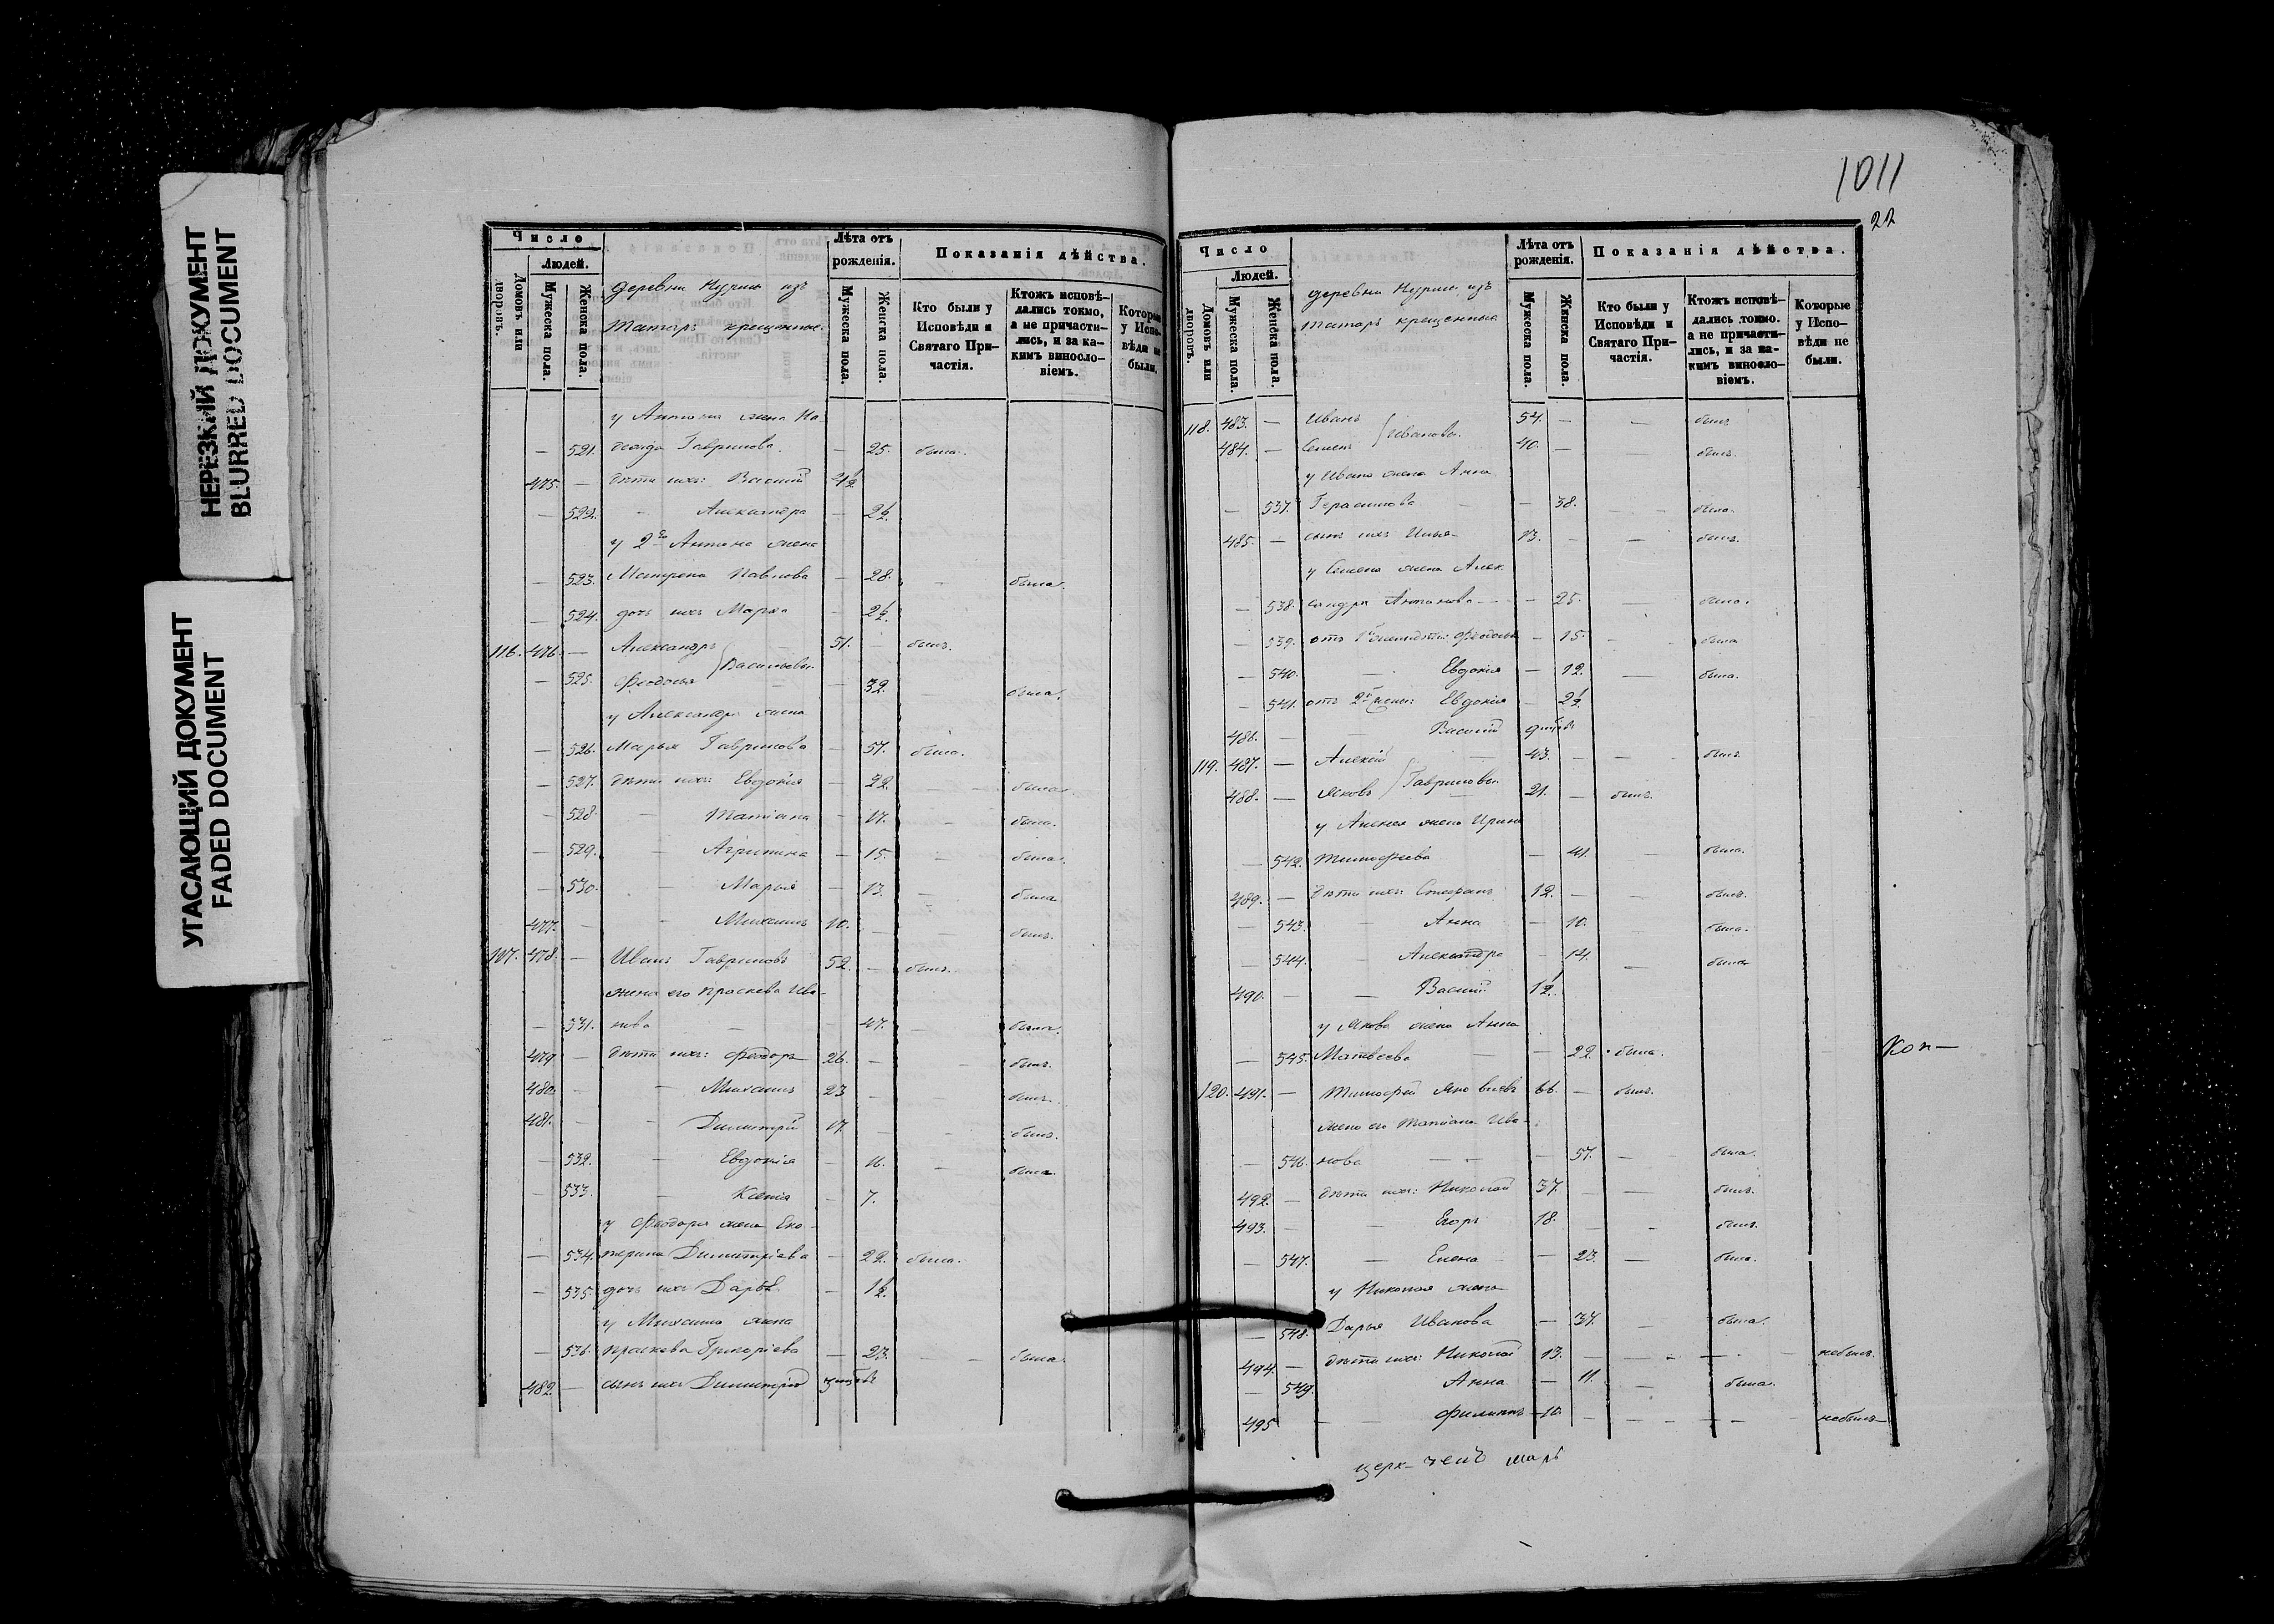 НЕРЕЗКИЙ ДОКУМЕНТ
BLURRED DOCUMENT
УГАСАЮЩИЙ ДОКУМЕНТ
FADED DOCUMENT
Число
Людей.
Домовъ или дворовъ.
Мужеска пола.
Женска пола.
деревни изъ
татаръ крещенные
Лѣта отъ рожденія.
Мужеска пола.
Женска пола.
Показанія дѣйства.
Кто были у Исповѣди и Святаго Причастія.
Ктожъ исповѣдались токмо, а не причастились, и за какимъ винословіемъ.
Которые у Исповѣди не были.
у Антона жена
521. Гаврилова — 25. была.
475. — дѣти ихъ: Василій
522. — Александра — 2½
у 2го Антона жена
523. Матрена Павлова — 28. была.
524. дочь ихъ Марѳа — 2½
116. 476. — Александръ 51. — былъ.
Васильевы
525. Феодосья — 32. была.
у Александра жена
526. Марья Гаврилова — 57. была.
527. дѣти ихъ: Евдокія — 22. была.
528. — Татіана — 17. была.
529. — Агрипина — 15. была.
530. — Марья — 13. была
477. — Михаилъ 10. — былъ.
478. — Иванъ Гавриловъ 52. — былъ.
жена его Праскева Ива-
531. нова — 47. была.
479. — дѣти ихъ: Феодоръ 26. — былъ.
480. — Михаилъ 23 — былъ.
481. — Димитрій 17. — былъ.
532. — Евдокія — 16. была.
533. — Ксенія — 7.
у Феодора жена Ека-
534. терина Димитріева — 22. была.
535. дочь ихъ Дарья — 1½
у Михаила жена
536. Праскева Григоріева — 23. была.
482. — сынъ ихъ Димитрій
1011
22
Число
Людей.
Домовъ или дворовъ.
Мужеска пола.
Женска пола.
деревни изъ
татаръ крещенные
Лѣта отъ рожденія.
Мужеска пола.
Женска пола.
Показанія дѣйства.
Кто были у Исповѣди и Святаго Причастія.
Ктожъ исповѣдались токмо. а не причастились, и за какимъ винословіемъ.
Которые у Исповѣди не были.
118. 483. — Иванъ 54. — былъ
Ивановы.
484. — Семенъ 40. — былъ.
у Ивана жена Анна
537. Герасимова — 38. была.
485. — сынъ ихъ Илья 13. — былъ.
у Семена жена Алек-
538. сандра Антонова — 25. была.
539. отъ 1й Феодосья — 15. была
540. — Евдокія — 12. была.
541. отъ 2й жены: Евдокія — 2½
486. — Василій
119. 487. — Алексій 43. — былъ.
Гавриловы
488. — Яковъ 21. — былъ.
у Алексея жена Ирина
542. Тимофеева — 41. была.
489. — дѣти ихъ: Стефанъ 12. — былъ.
543. — Анна — 10. была.
544. — Александра — 14. была
490. — Василій 1½.
у Якова жена Анна
545. Матвеева — 22. была.
120. 491. — Тимофей Яковлевъ 66. — былъ.
жена его Татіана Ива-
546. нова — 57. была.
492. — дѣти ихъ: Николай 37. — былъ.
493. — Егоръ 18. — былъ.
547. — Елена — 23. была.
у Николая жена
548. Дарья Иванова — 37. была.
494. — дѣти ихъ: Николай 13. — небылъ.
549. Анна — 11. была.
495 — Филиппъ 10. — небылъ